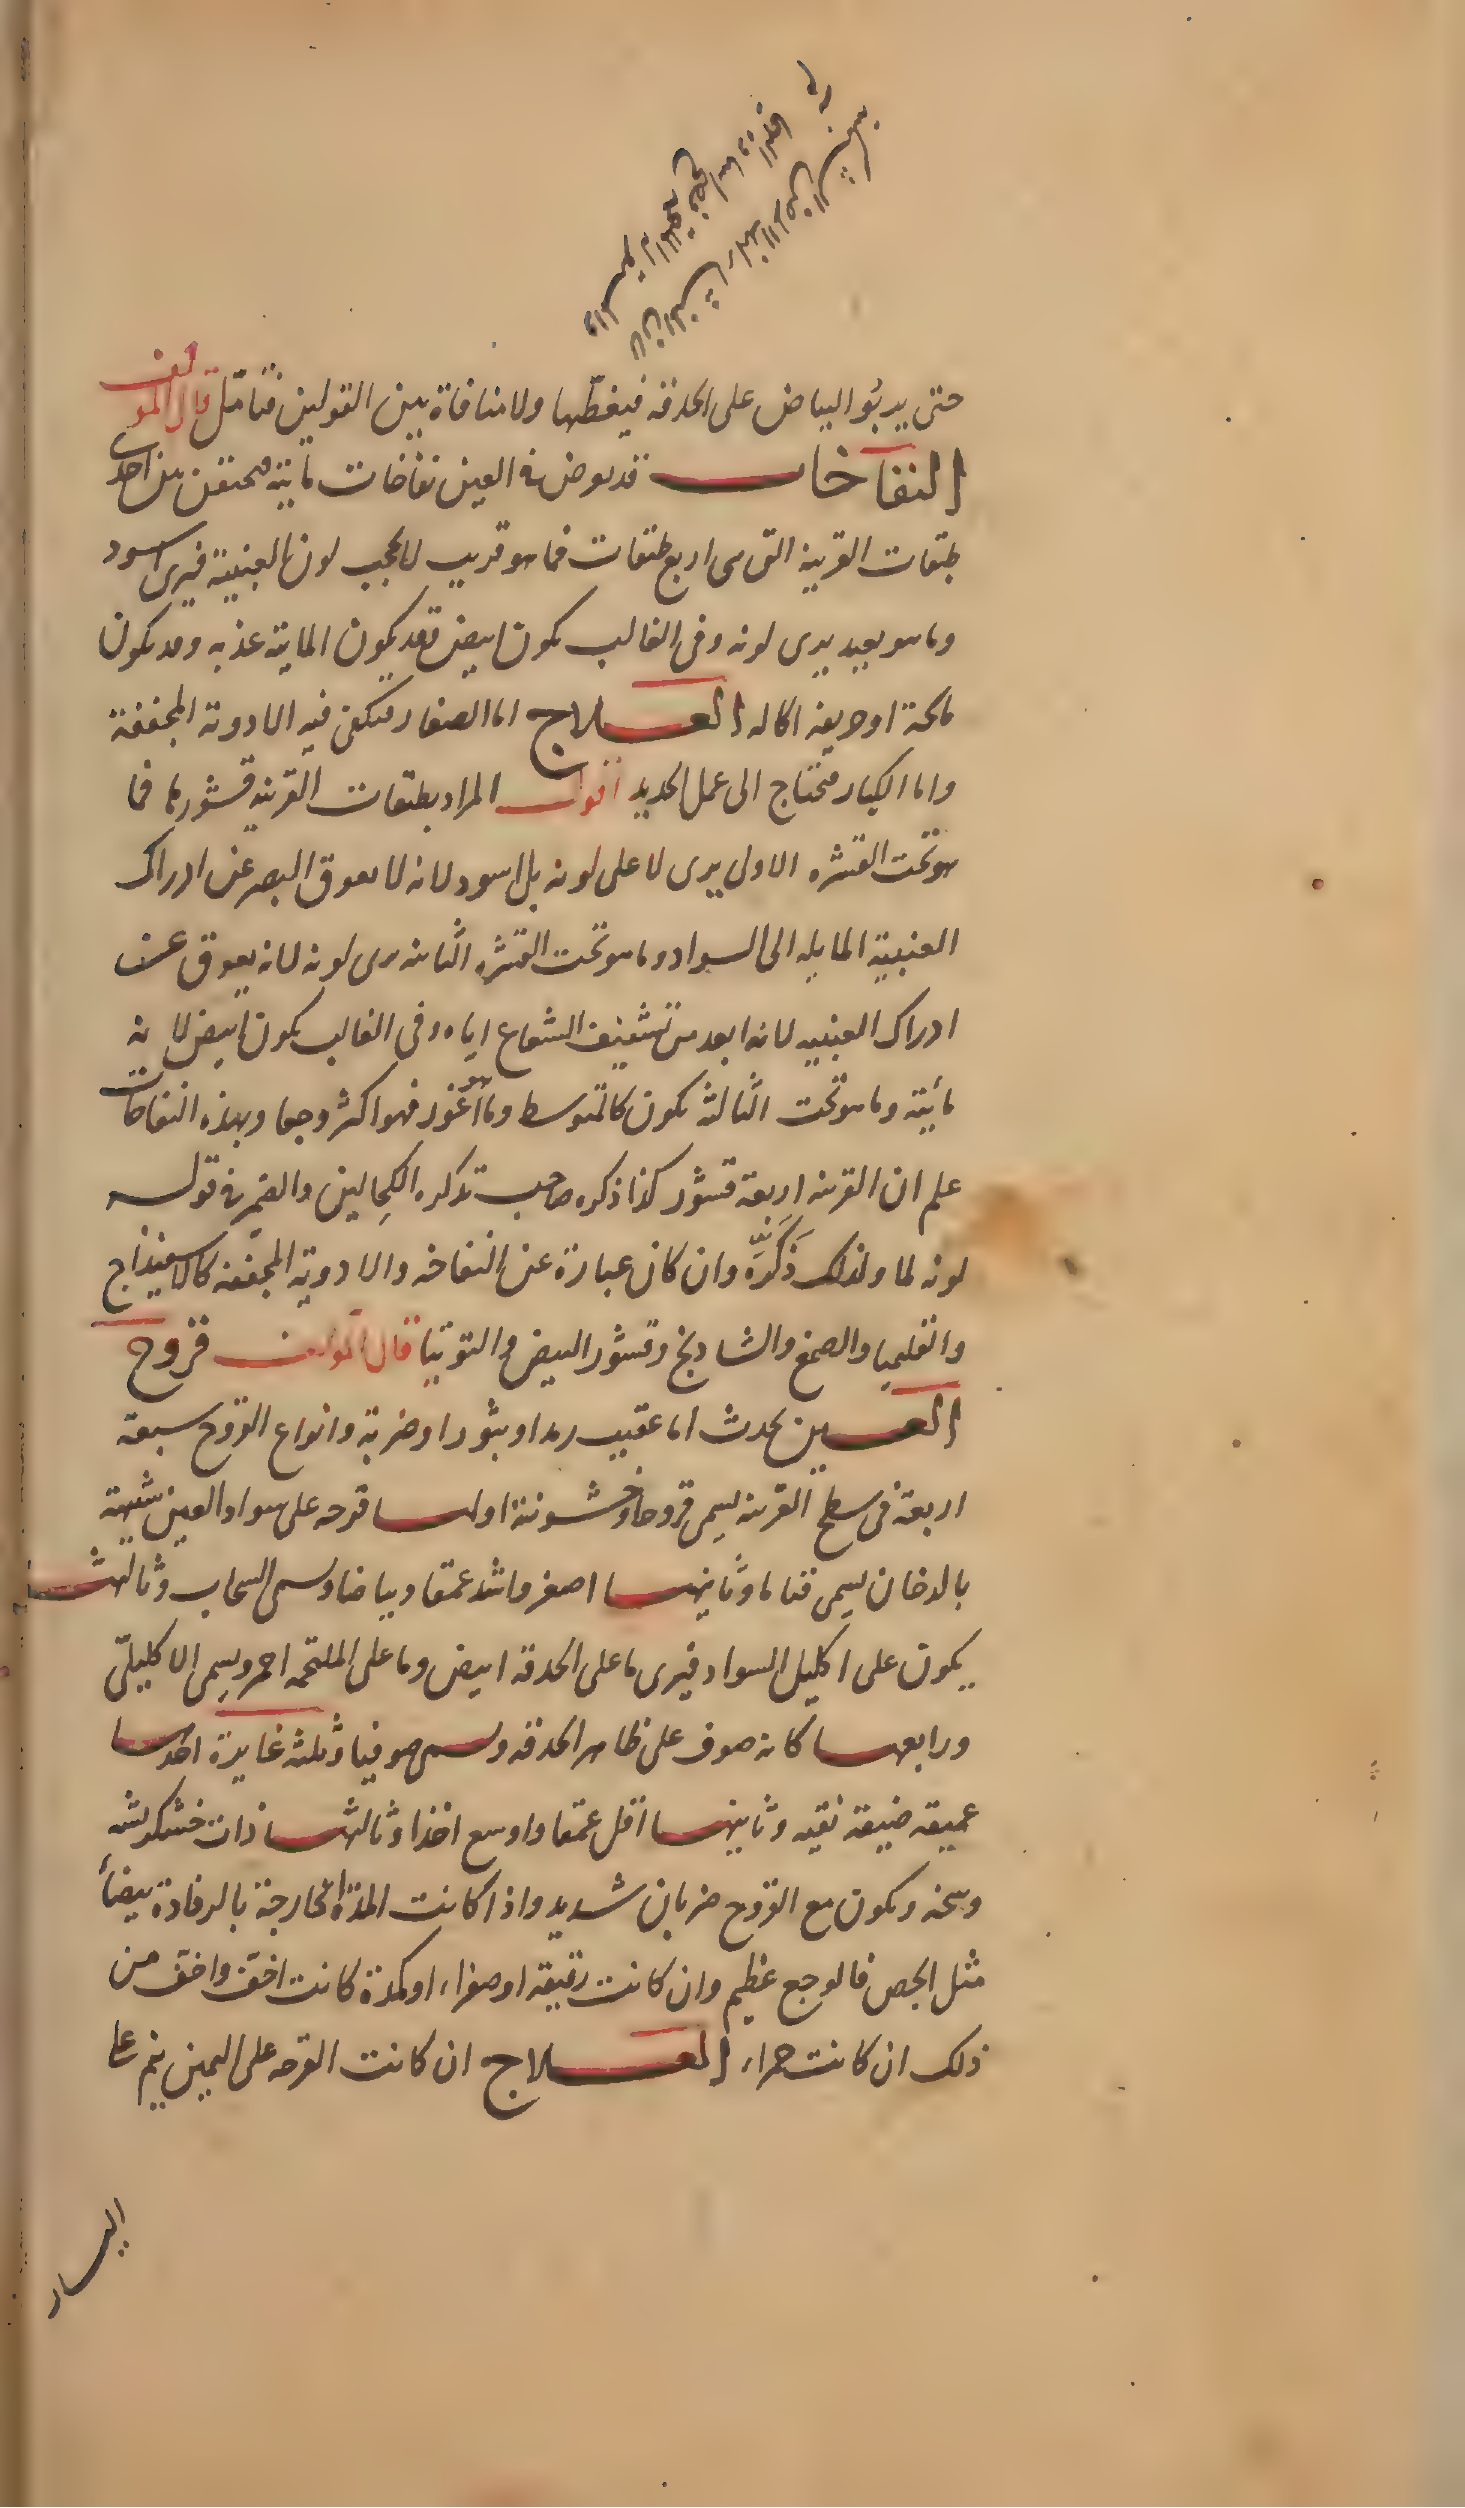 حتى يربُو البياض على الحدقه فيغطّيها ولا منافاة بين القولين فتامّل قال المولف
النفاخات قد يعرض فى العين نفاخات مائية محتقن بين احدى
طبقات القرنية التى هى اربع طبقات فما هو قريب لا يحجب لون العنبية فيرى اسود
وما هو بعيد يرى لونه وفى الغالب يكون ابيض وقد يكون المائية عذبه وقد يكون
مالحة او حريفه اكاله العلاج اما الصغار فيكفى فيه الادوية المجففة
واما الكبار فيحتاج الى عمل الحديد اقول المراد بطبقات القرنيه قشورها فما
هو تحت القشره الاولى يرى لا على لونه بل اسود لانه لا يعوق البصر عن ادراك
العنبية المايله الى السواد وما هو تحت القشره الثانيه يرى لونه لانه يعوق عن
ادراك العنبيه لانه ابعد من تشفيف الشعاع اياه وفى الغالب يكون ابيض لانه
مائية وما هو تحت الثالثة يكون كالمتوسط وما هو اغور فهو اكثر وجعا وبهذه النفاخات
علم ان القرنيه اربعة قشور كذا ذكره صاحب تذكره الكحالين والضمير فى قوله
لونه لما ولذلك ذكّره وان كان عبارة عن النفاخه والادوية المجففه كالاسفيذاج
واقليميا والصمغ والشادنج وقشور البيض والتوتيا قال المولف قروح
العين يحدث اما عقيب رمد او بثور او ضربة وانواع القروح سبعة
اربعة فى سطح القرنيه يسمى قروحا وخشونة اولها قرحه على سواد العين شبيهة
بالدخان يسمى قتاما وثانيها اصغر واشد عمقا وبياضا ويسمى السحاب وثالثها
يكون على اكليل السواد فيرى ما على الحدقه ابيض وما على الملتحمه احمر ويسمى الاكليلىّ
ورابعها كانه صوف على ظاهر الحدقه ويسمى صوفيا وثلثه غايرة احدها
عميقه ضيقة نقيه وثانيها اقل عمقا واوسع اخذا وثالثها ذات خشكريشه
وسخه ويكون مع القروح ضربان شديد واذا كانت المدّة الخارجة بالرفادة بيضاء
مثل الجص فالوجع عظيم وان كانت رقيقه او صفراء او كمدة كانت اخف واخف من
ذلك ان كانت حمراء العلاج ان كانت القرحه على اليمين ينم على
اليسار